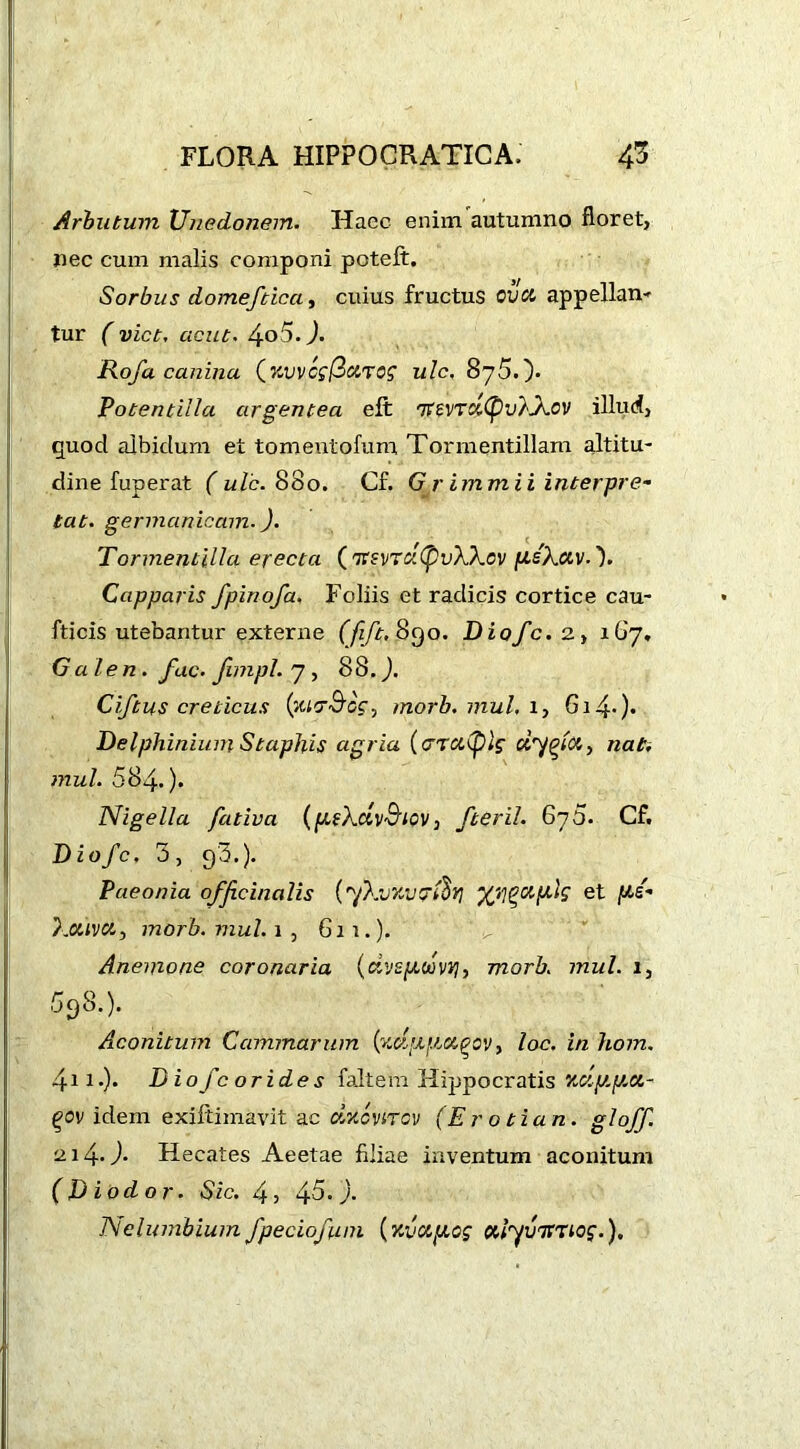 FLORA HIPPOCRATICA. 43
Arbutum Unedonem. Haec enim autumno floret,
nec cum malis componi poteſt.
Sorbus domeſtica, cuius fructus ὄυα appellan-
tur (vict. acut. 405.).
Roſa canina (κυνὸςβατος ulc. 875.).
Potentilla argentea eſt πεντάφυλλον illud,
quod albidum et tomentoſum Tormentillam altitu-
dine ſuperat (ulc. 880. Cf. Grimmii interpre-
tat. germanicam.).
Tormentilla erecta (πεντάφυλλον μέλαν.).
Capparis ſpinoſa. Foliis et radicis cortice cau-
ſticis utebantur externe (fiſt. 890. Dioſc. 2, 167.
Galen. fac. ſimpl. 7, 88.).
Ciſtus creticus (κισθὸς, morb. mul. 1, 614.).
Delphinium Staphis agria (σταφὶς ἀγρία, nat.
mul. 584.).
Nigella ſativa (μελάνθιον, ſteril. 675. Cf.
Dioſc. 3, 93.).
Paeonia officinalis (γλυκυσίδη χηραμὶς et μέ-
λαινα, morb. mul. 1, 611.).
Anemone coronaria (ἀνεμώνη, morb. mul. 1,
598.).
Aconitum Cammarum (κάμμαρον, loc. in hom.
411.). Dioſcorides ſaltem Hippocratis κάμμα-
ρον idem exiſtimavit ac ἀκόνιτον (Erotian. gloſſ.
214.). Hecates Aeetae filiae inventum aconitum
(Diodor. Sic. 4, 45.).
Nelumbium ſpecioſum (κύαμος αἰγύπτιος.).